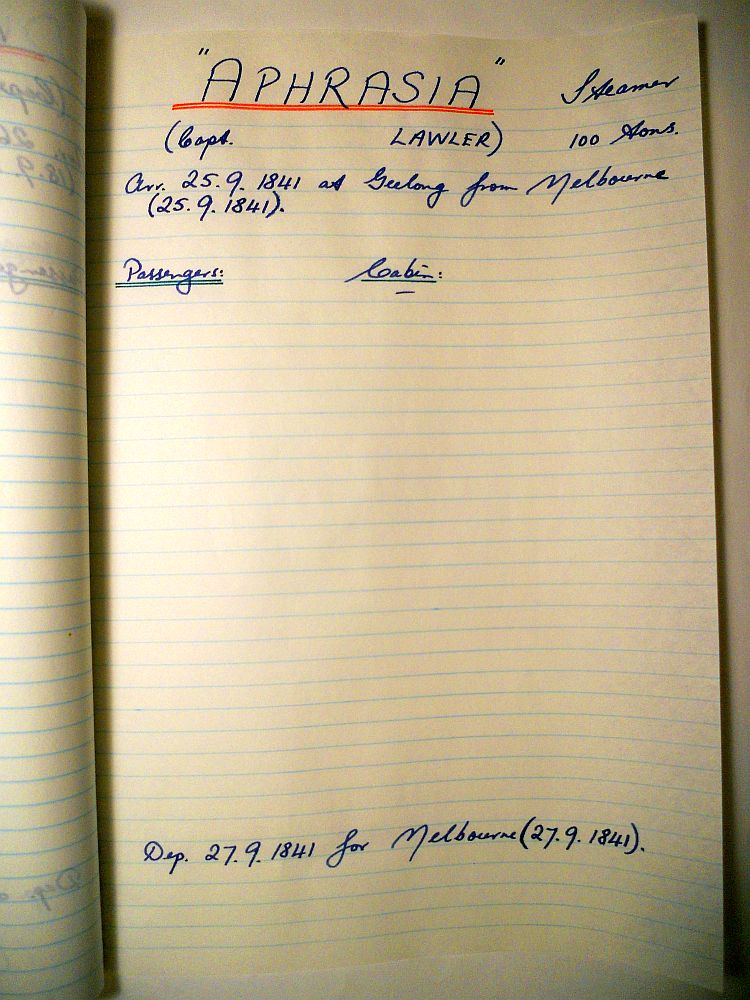 "APHRASIA" Steamer
(Capt. LAWLER) 100 tons.
Arr. 25.9.1841 at Geelong from Melbourne
(25.9.1841).
Passengers: Cabin:
—
Dep. 27.9.1841 for Melbourne (27.9.1841).